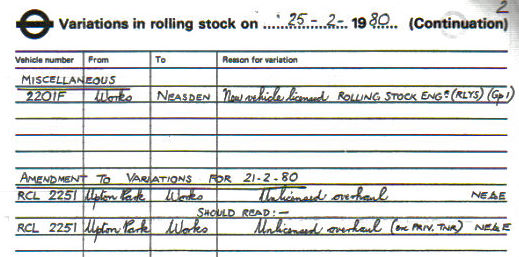 2
Variations in rolling stock on 25 - 2 - 1980 (Continuation)
Vehicle number From To Reason for variation
MISCELLANEOUS
2201F Works NEASDEN New vehicle licensed ROLLING STOCK ENGR (RLYS) (Gp 1)
AMENDMENT TO VARIATIONS FOR 21-2-80
RCL 2251 Upton Park Works Unlicensed overhaul NE&E
SHOULD READ:—
RCL 2251 Upton Park Works Unlicensed overhaul (ex PRIV. TNR) NE&E